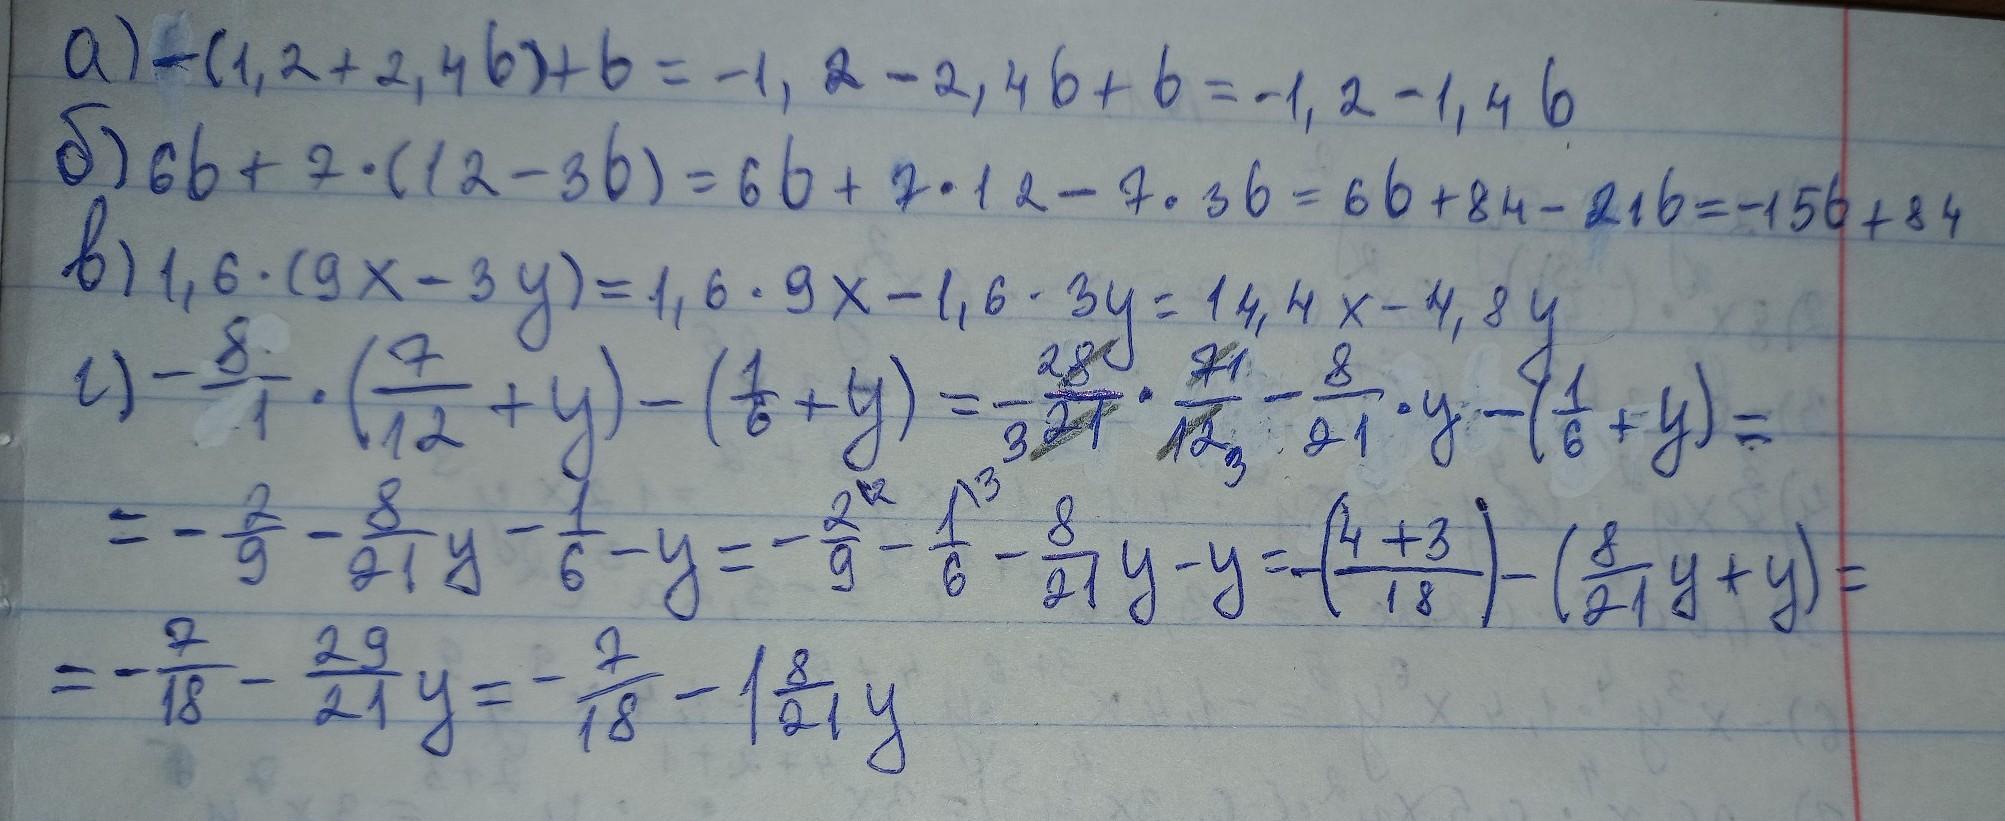 а) -(1,2+2,4b)+b=-1,2-2,4b+b=-1,2-1,4b
б) 6b+7·(12-3b)=6b+7·12-7·3b=6b+84-21b=-15b+84
в) 1,6·(9x-3y)=1,6·9x-1,6·3y=14,4x-4,8y
г) -8/1·(7/12+y)-(1/6+y)=-28/321·71/123-8/21·y-(1/6+y)=
=-2/9-8/21y-1/6-y=-2\2/9-1\3/6-8/21y-y=-(4+3/18)-(8/21y+y)=
=-7/18-29/21y=-7/18-1 8/21y